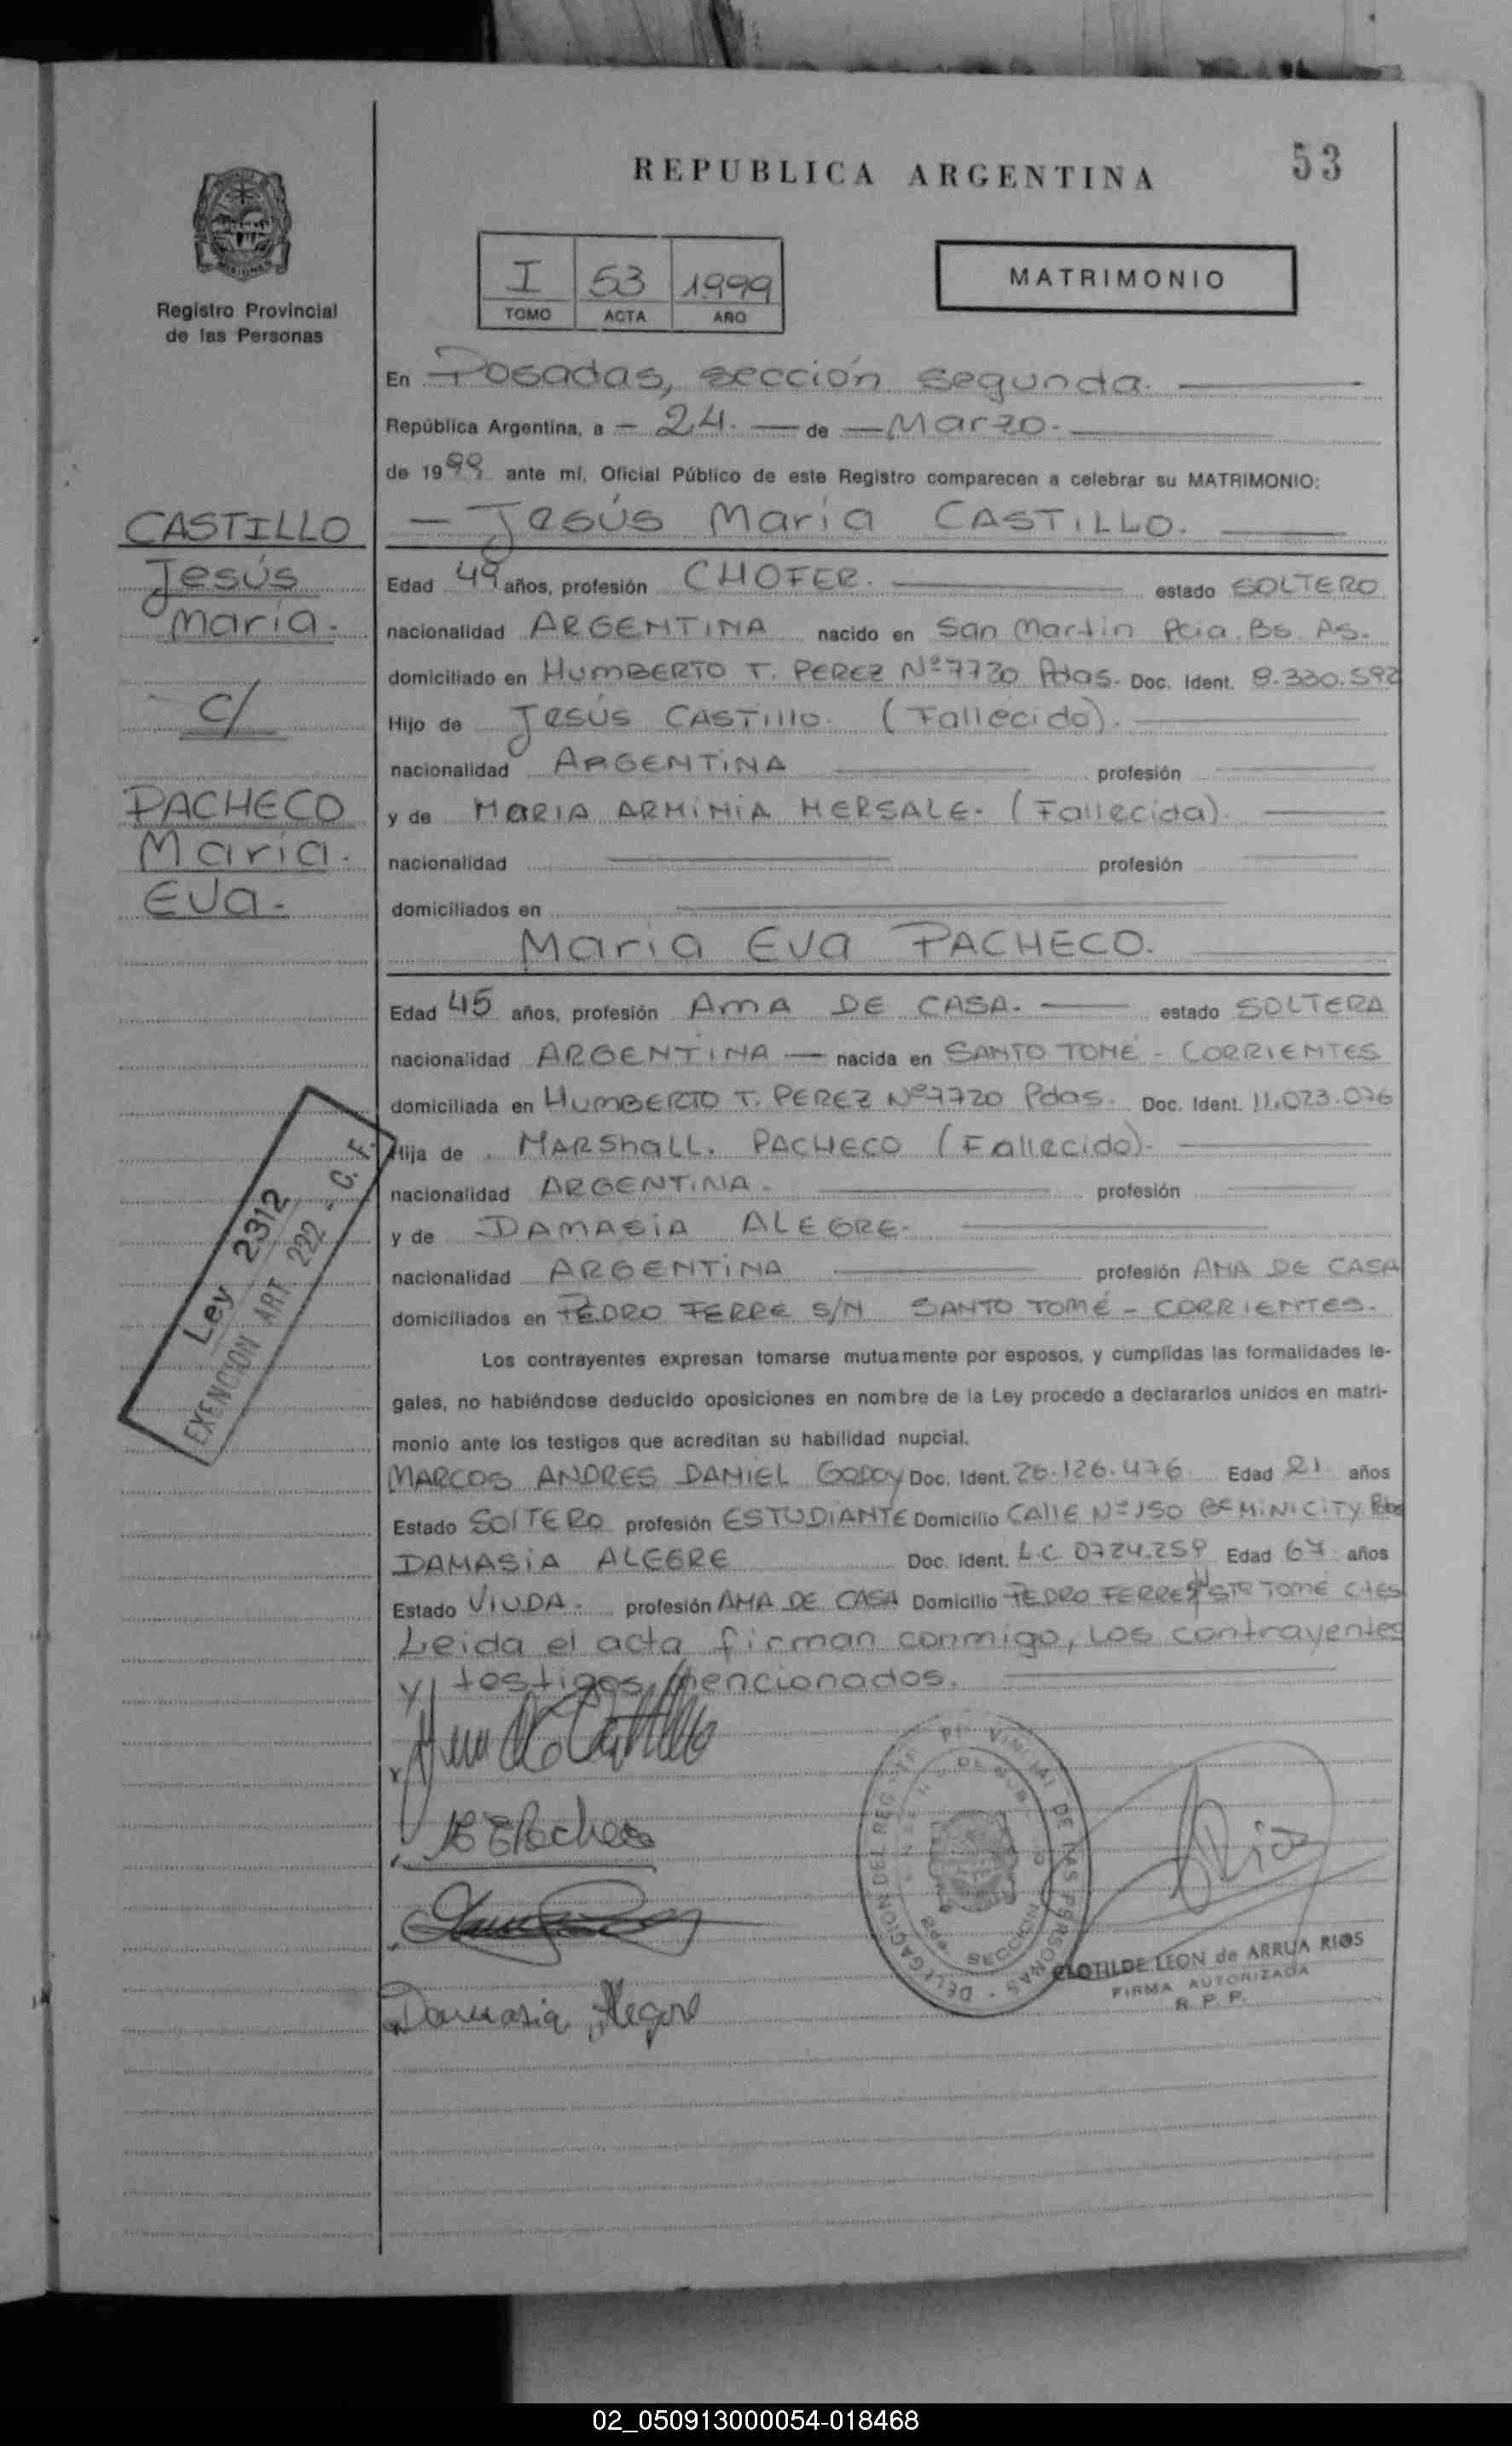 REPUBLICA ARGENTINA
53
I 53 1999
TOMO ACTA AÑO
MATRIMONIO
Registro Provincial
de las Personas
En Posadas, sección segunda.
República Argentina, a - 24. - de - Marzo.
de 1999 ante mí, Oficial Público de este Registro comparecen a celebrar su MATRIMONIO:
- Jesús María CASTILLO.
CASTILLO
Jesús
María.
c/
PACHECO
María.
Eva.
Edad 49 años, profesión CHOFER. estado SOLTERO
nacionalidad ARGENTINA nacido en San Martin Pcia. Bs. As.
domiciliado en HUMBERTO T. PEREZ Nº 7720 Pdas. Doc. Ident. 8.330.592
Hijo de Jesús CASTIllo. (Fallecido).
nacionalidad ARGENTINA profesión
y de MARIA ARMINIA MERSALE. (Fallecida)
nacionalidad profesión
domiciliados en
Maria Eva PACHECO.
Edad 45 años, profesión AMA DE CASA. estado SOLTERA
nacionalidad ARGENTINA - nacida en SANTO TOMÉ - CORRIENTES
domiciliada en HUMBERTO T. PEREZ Nº 7720 Pdas. Doc. Ident. 11.023.076
Hija de MARShALL. PACHECO (Fallecido).
nacionalidad ARGENTINA. profesión
y de DAMASIA ALEGRE.
nacionalidad ARGENTINA profesión AMA DE CASA
domiciliados en PEDRO FERRE S/N SANTO TOMÉ - CORRIENTES.
Ley 2312
EXENCION ART 222 - C. F.
Los contrayentes expresan tomarse mutuamente por esposos, y cumplidas las formalidades le-
gales, no habiéndose deducido oposiciones en nombre de la Ley procedo a declararlos unidos en matri-
monio ante los testigos que acreditan su habilidad nupcial.
MARCOS ANDRES DANIEL GODOY Doc. Ident. 26.126.476 Edad 21 años
Estado SOlTERO profesión ESTUDIANTE Domicilio CAllE Nº 150 Bº MINICITY Pdas
DAMASIA ALEGRE Doc. Ident. L.C. 0724.259 Edad 67 años
Estado VIUDA. profesión AMA DE CASA Domicilio PEDRO FERRE S/N STO TOMÉ CTES
Leida el acta firman conmigo, los contrayentes
y testigos mencionados.
Damasia Alegre
DELEGACION DEL REGISTRO PROVINCIAL DE LAS PERSONAS
SECCION
CLOTILDE LEON de ARRUA RIOS
FIRMA AUTORIZADA
R. P. P.
02_050913000054-018468